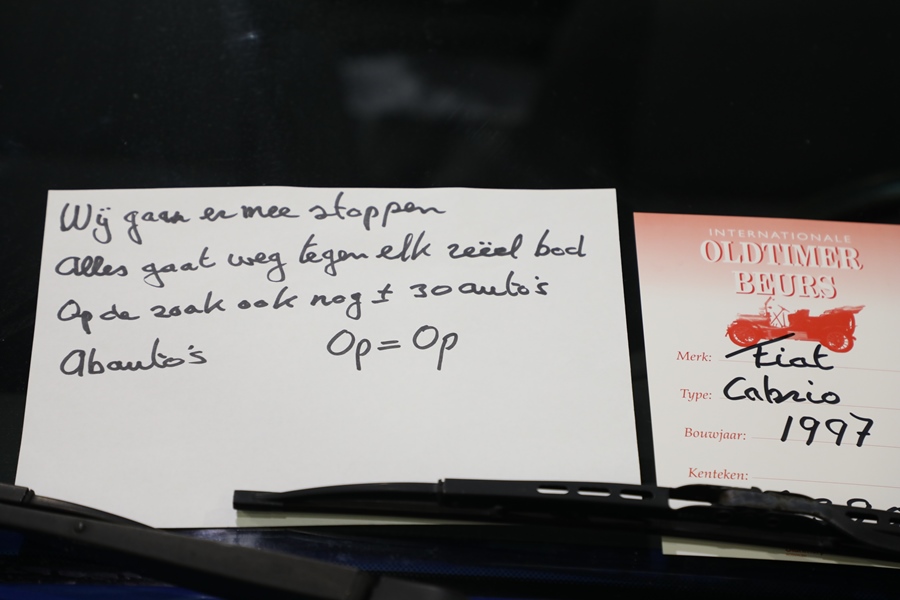 Wij gaan er mee stoppen
Alles gaat weg tegen elk reëel bod
Op de zaak ook nog ± 30 auto's
Abauto's
Op = Op
INTERNATIONALE
OLDTIMER
BEURS
Merk: Fiat
Type: Cabrio
Bouwjaar: 1997
Kenteken: